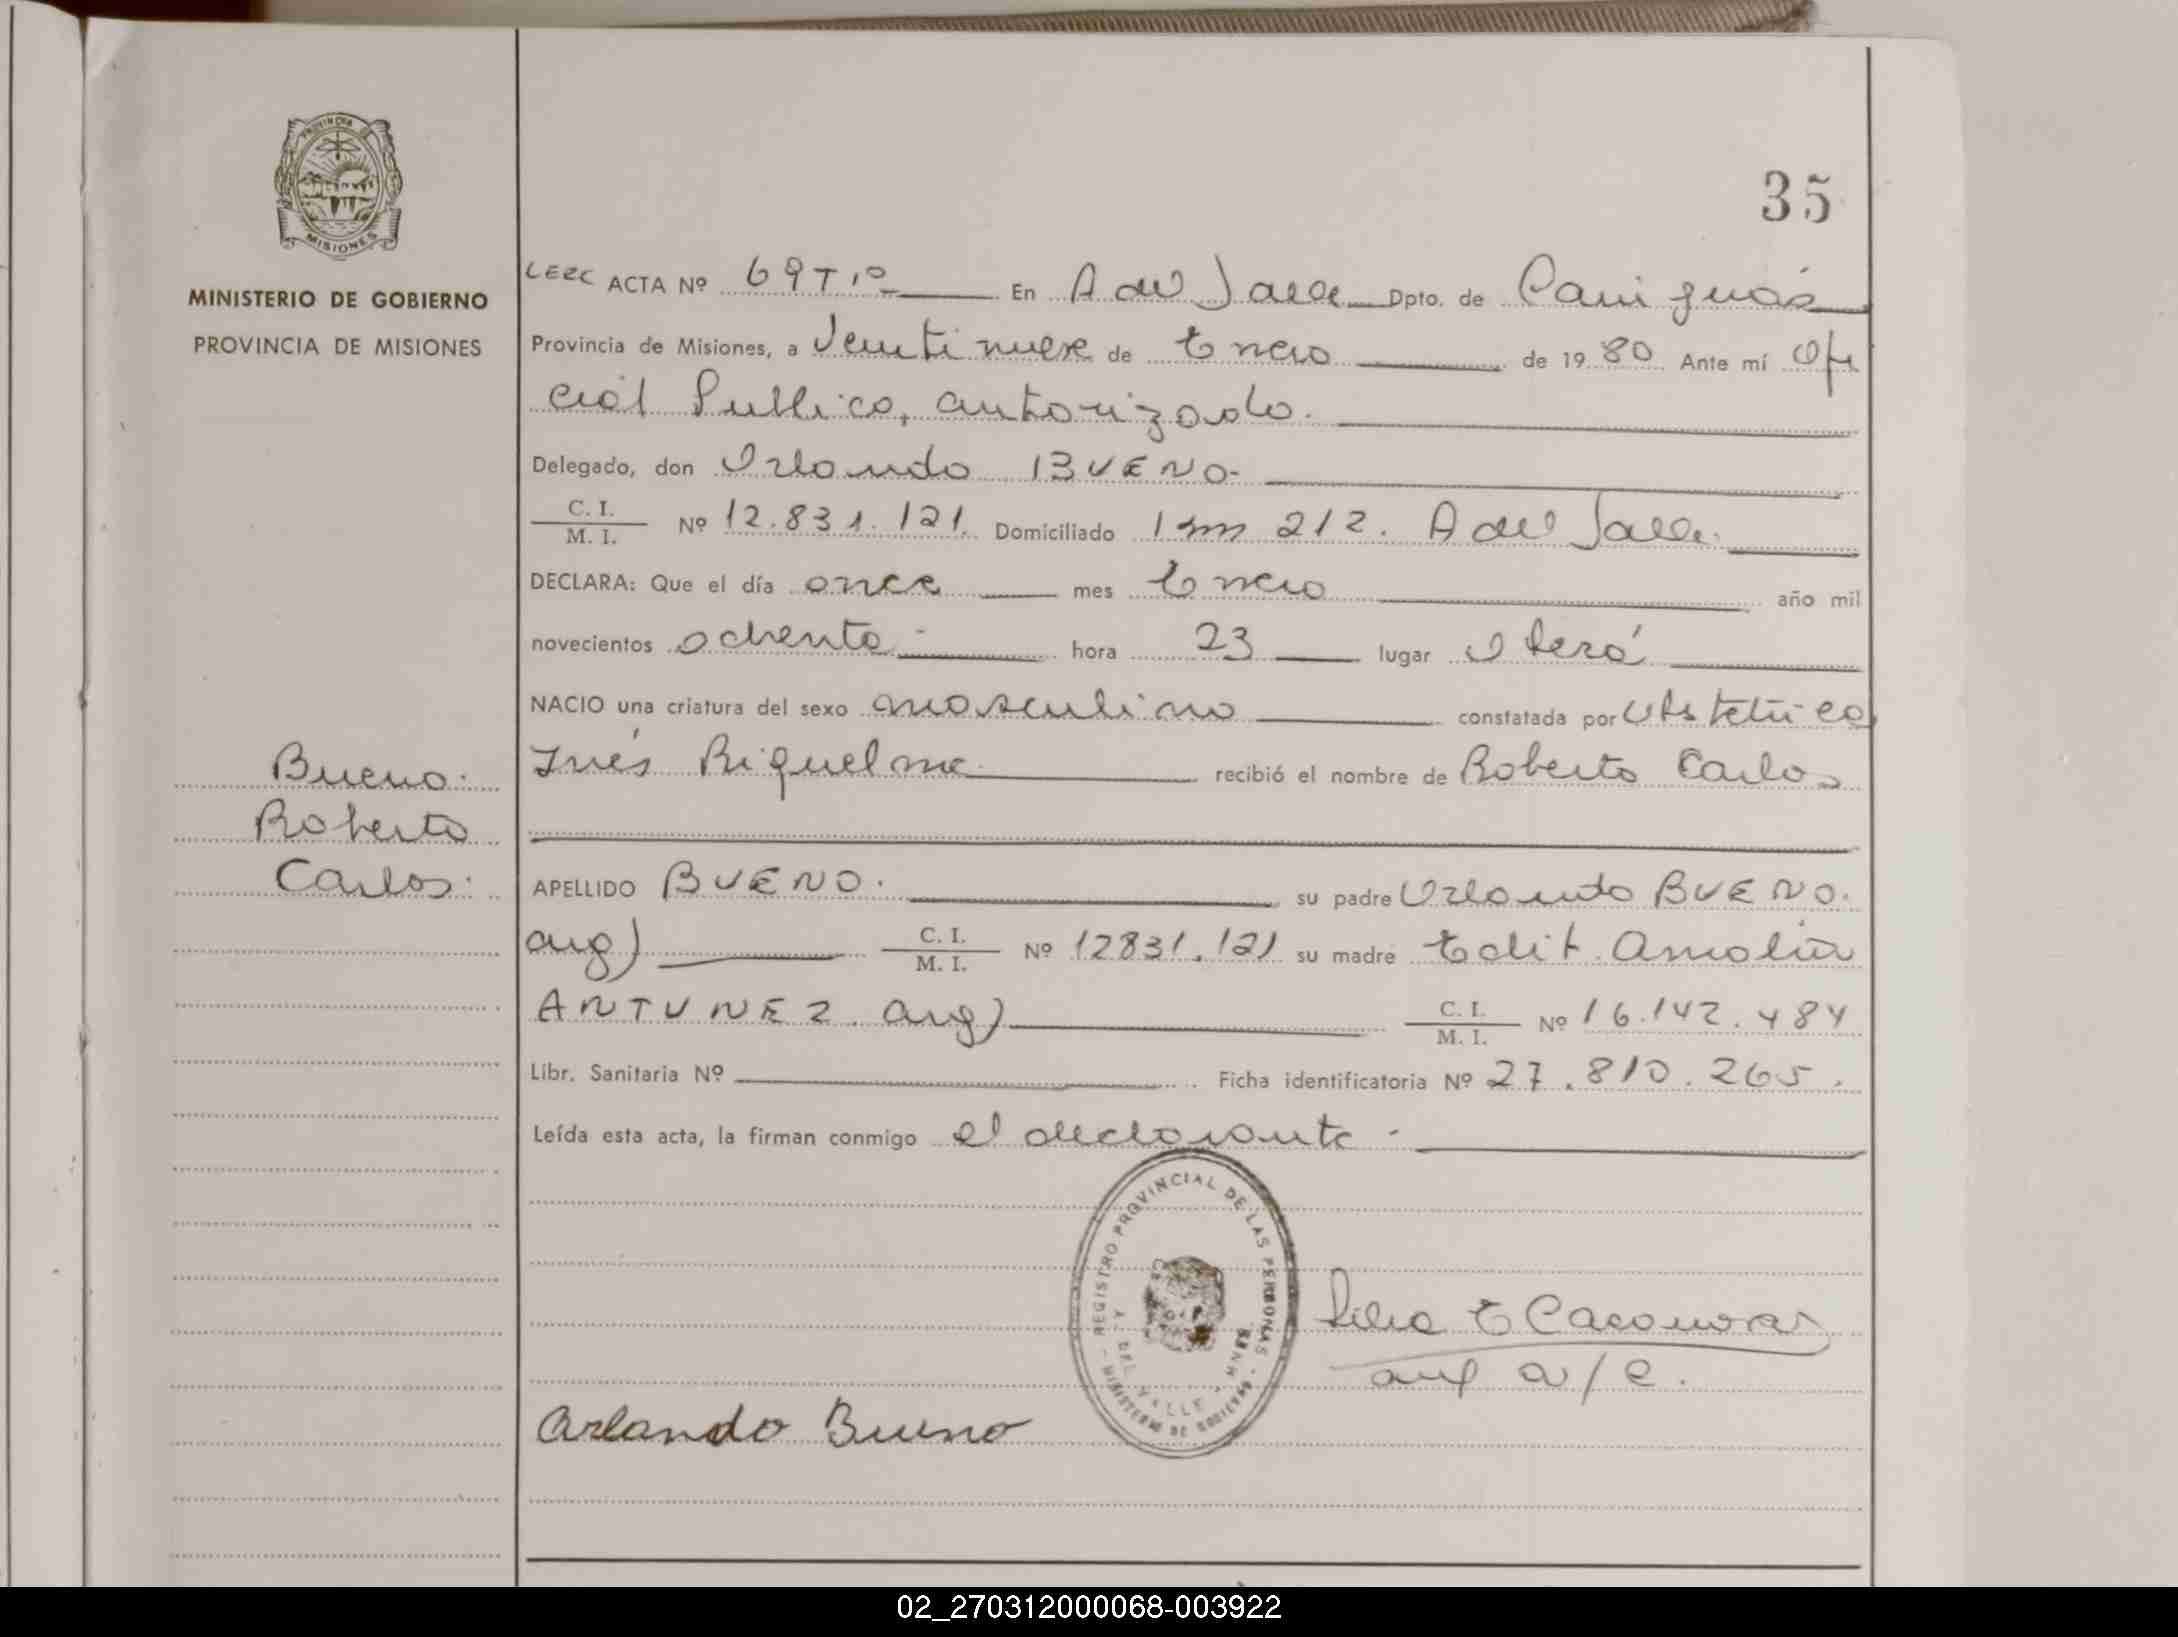 35
PROVINCIA DE
MISIONES
MINISTERIO DE GOBIERNO
PROVINCIA DE MISIONES
ACTA Nº 69 Tº 1º En A del Valle Dpto. de Cainguás
Provincia de Misiones, a Veintinueve de Enero de 1980 Ante mí Ofi
cial Publico, autorizado.
Delegado, don Orlando BUENO-
C. I.
M. I. Nº 12.831.121. Domiciliado 212. A del Valle.
DECLARA: Que el día once mes Enero año mil
novecientos ochenta- hora 23 lugar Oberá
NACIO una criatura del sexo masculino constatada por Obstetrica
Inés Riquelme recibió el nombre de Roberto Carlos
Bueno.
Roberto
Carlos.
APELLIDO BUENO. su padre Orlando BUENO.
arg) C. I.
M. I. Nº 12831.121 su madre Edit
ANTUNEZ. arg) C. I.
M. I. Nº 16.142.484
Libr. Sanitaria Nº Ficha identificatoria Nº 27.810.265.
Leída esta acta, la firman conmigo el declarante-
REGISTRO PROVINCIAL DE LAS PERSONAS
MINISTERIO DE GOBIERNO
DEL VALLE
aux a/c.
Orlando Bueno
02_270312000068-003922